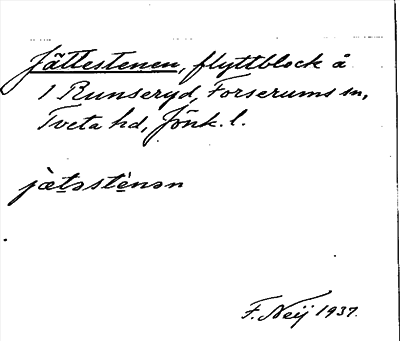 Jättestenen, flyttblock å
1 Runseryd, Forserums sn,
Tveta hd, Jönk. l.
jæ̀təstènən
F. Neij 1937.